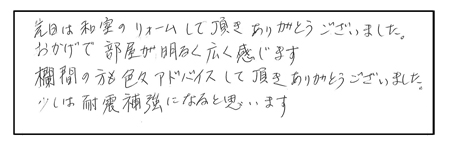 先日は和室のリォームして頂きありがとうございました。
おかげで部屋が明るく広く感じます
欄間の方も色々アドバイスして頂きありがとうございました。
少しは耐震補強になると思います